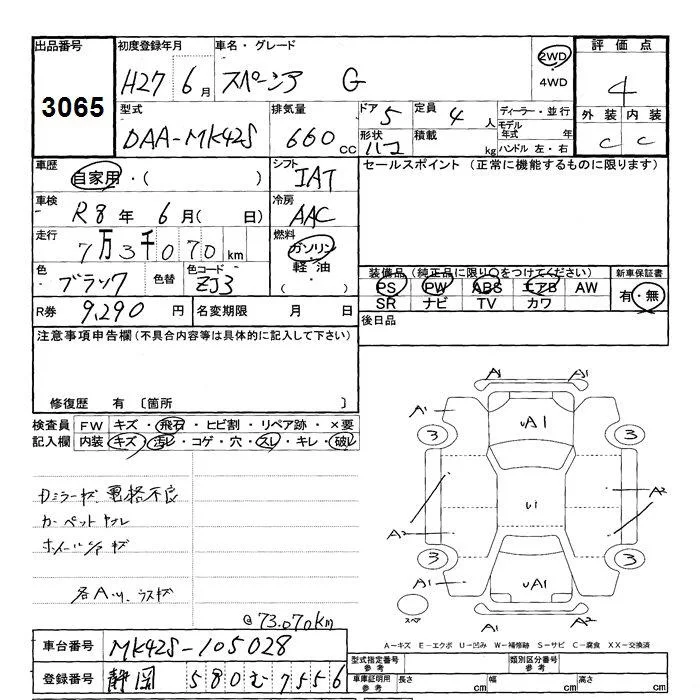 出品番号 初度登録年月 車名・グレード 2WD ・ 4WD 評価点
3065 H27 6月 スペーシア G 4
型式 排気量 ドア 5 定員 4人 ディーラー・並行 外装 内装
DAA-MK42S 660cc 形状 ハコ 積載 kg モデル年式 年 C C
ハンドル 左・右
車歴 自家用・( ) シフト IAT セールスポイント (正常に機能するものに限ります)
車検 R8年 6月( 日) 冷房 AAC
走行 7万3千070km 燃料 ガソリン・軽油・( )
色 ブラック 色替 色コード ZJ3 装備品 (純正品に限り○をつけてください) 新車保証書
PS PW ABS エアB AW 有・無
R券 9,290円 名変期限 月 日 SR ナビ TV カワ
注意事項申告欄(不具合内容等は具体的に記入して下さい) 後日品
修復歴 有 〔箇所 〕
検査員記入欄 FW キズ・飛石・ヒビ割・リペア跡・×要
内装 キズ・汚レ・コゲ・穴・スレ・キレ・破レ
A1 A1
A1 uA1
3 3
Dミラーキズ 電格不良
カーペットヨゴレ
ホイールキャップキズ
A2 u1 A2
3 3
A1 uA1 A1
各A1、U1、ウスキズ
@73.070km スペア
A1 A2
A-キズ E-エクボ U-凹み W-補修跡 S-サビ C-腐食 XX-交換済
車台番号 MK42S-105028 型式指定番号 参考 類別区分番号 参考
登録番号 静岡 580 む 7556 車庫証明用 参考 長さ cm 幅 cm 高さ cm